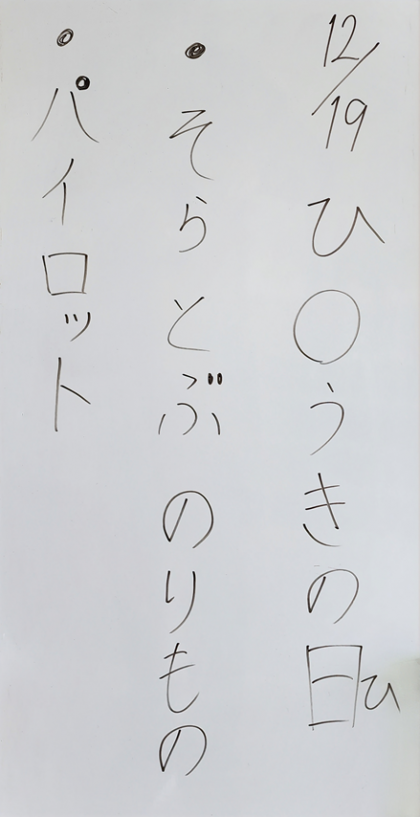 12/19 ひ○うきの日ひ
• そらとぶ のりもの
• パイロット